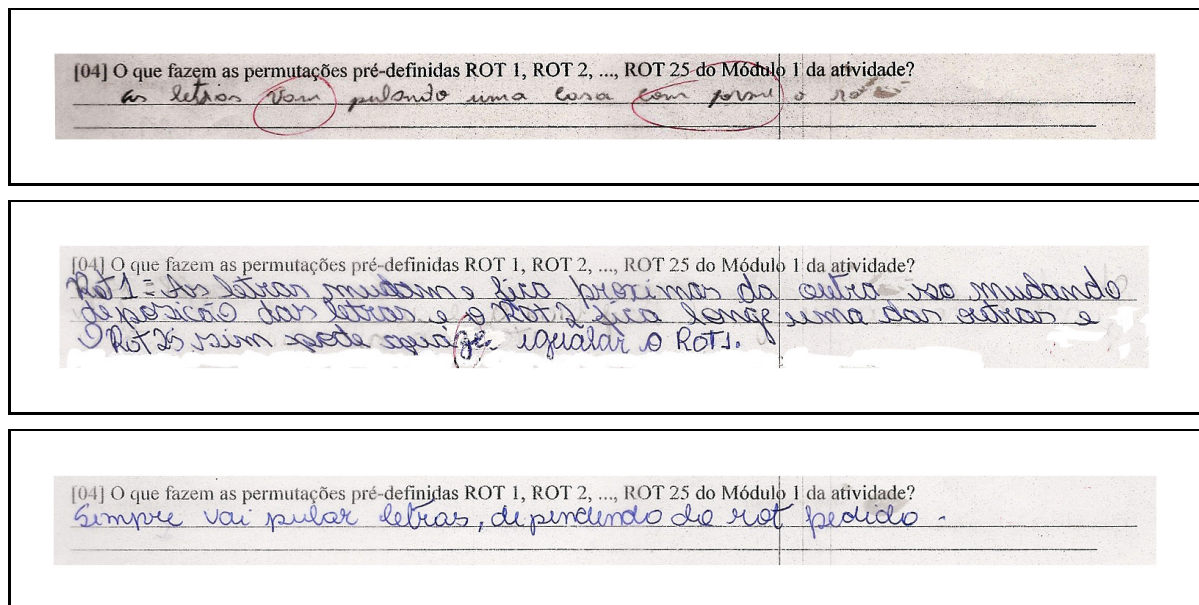 [04] O que fazem as permutações pré-definidas ROT 1, ROT 2, ..., ROT 25 do Módulo 1 da atividade?
as letras vam pulando uma casa com forme o rot
[04] O que fazem as permutações pré-definidas ROT 1, ROT 2, ..., ROT 25 do Módulo 1 da atividade?
Rot 1 = As letras mudam e fica proximas da outra iso mudando
de posição das letras e o Rot 2 fica longe uma das outras e
O Rot 25 sim pode igualar o Rot 1.
[04] O que fazem as permutações pré-definidas ROT 1, ROT 2, ..., ROT 25 do Módulo 1 da atividade?
Simpre vai pular letras, dipindendo do rot pedido.